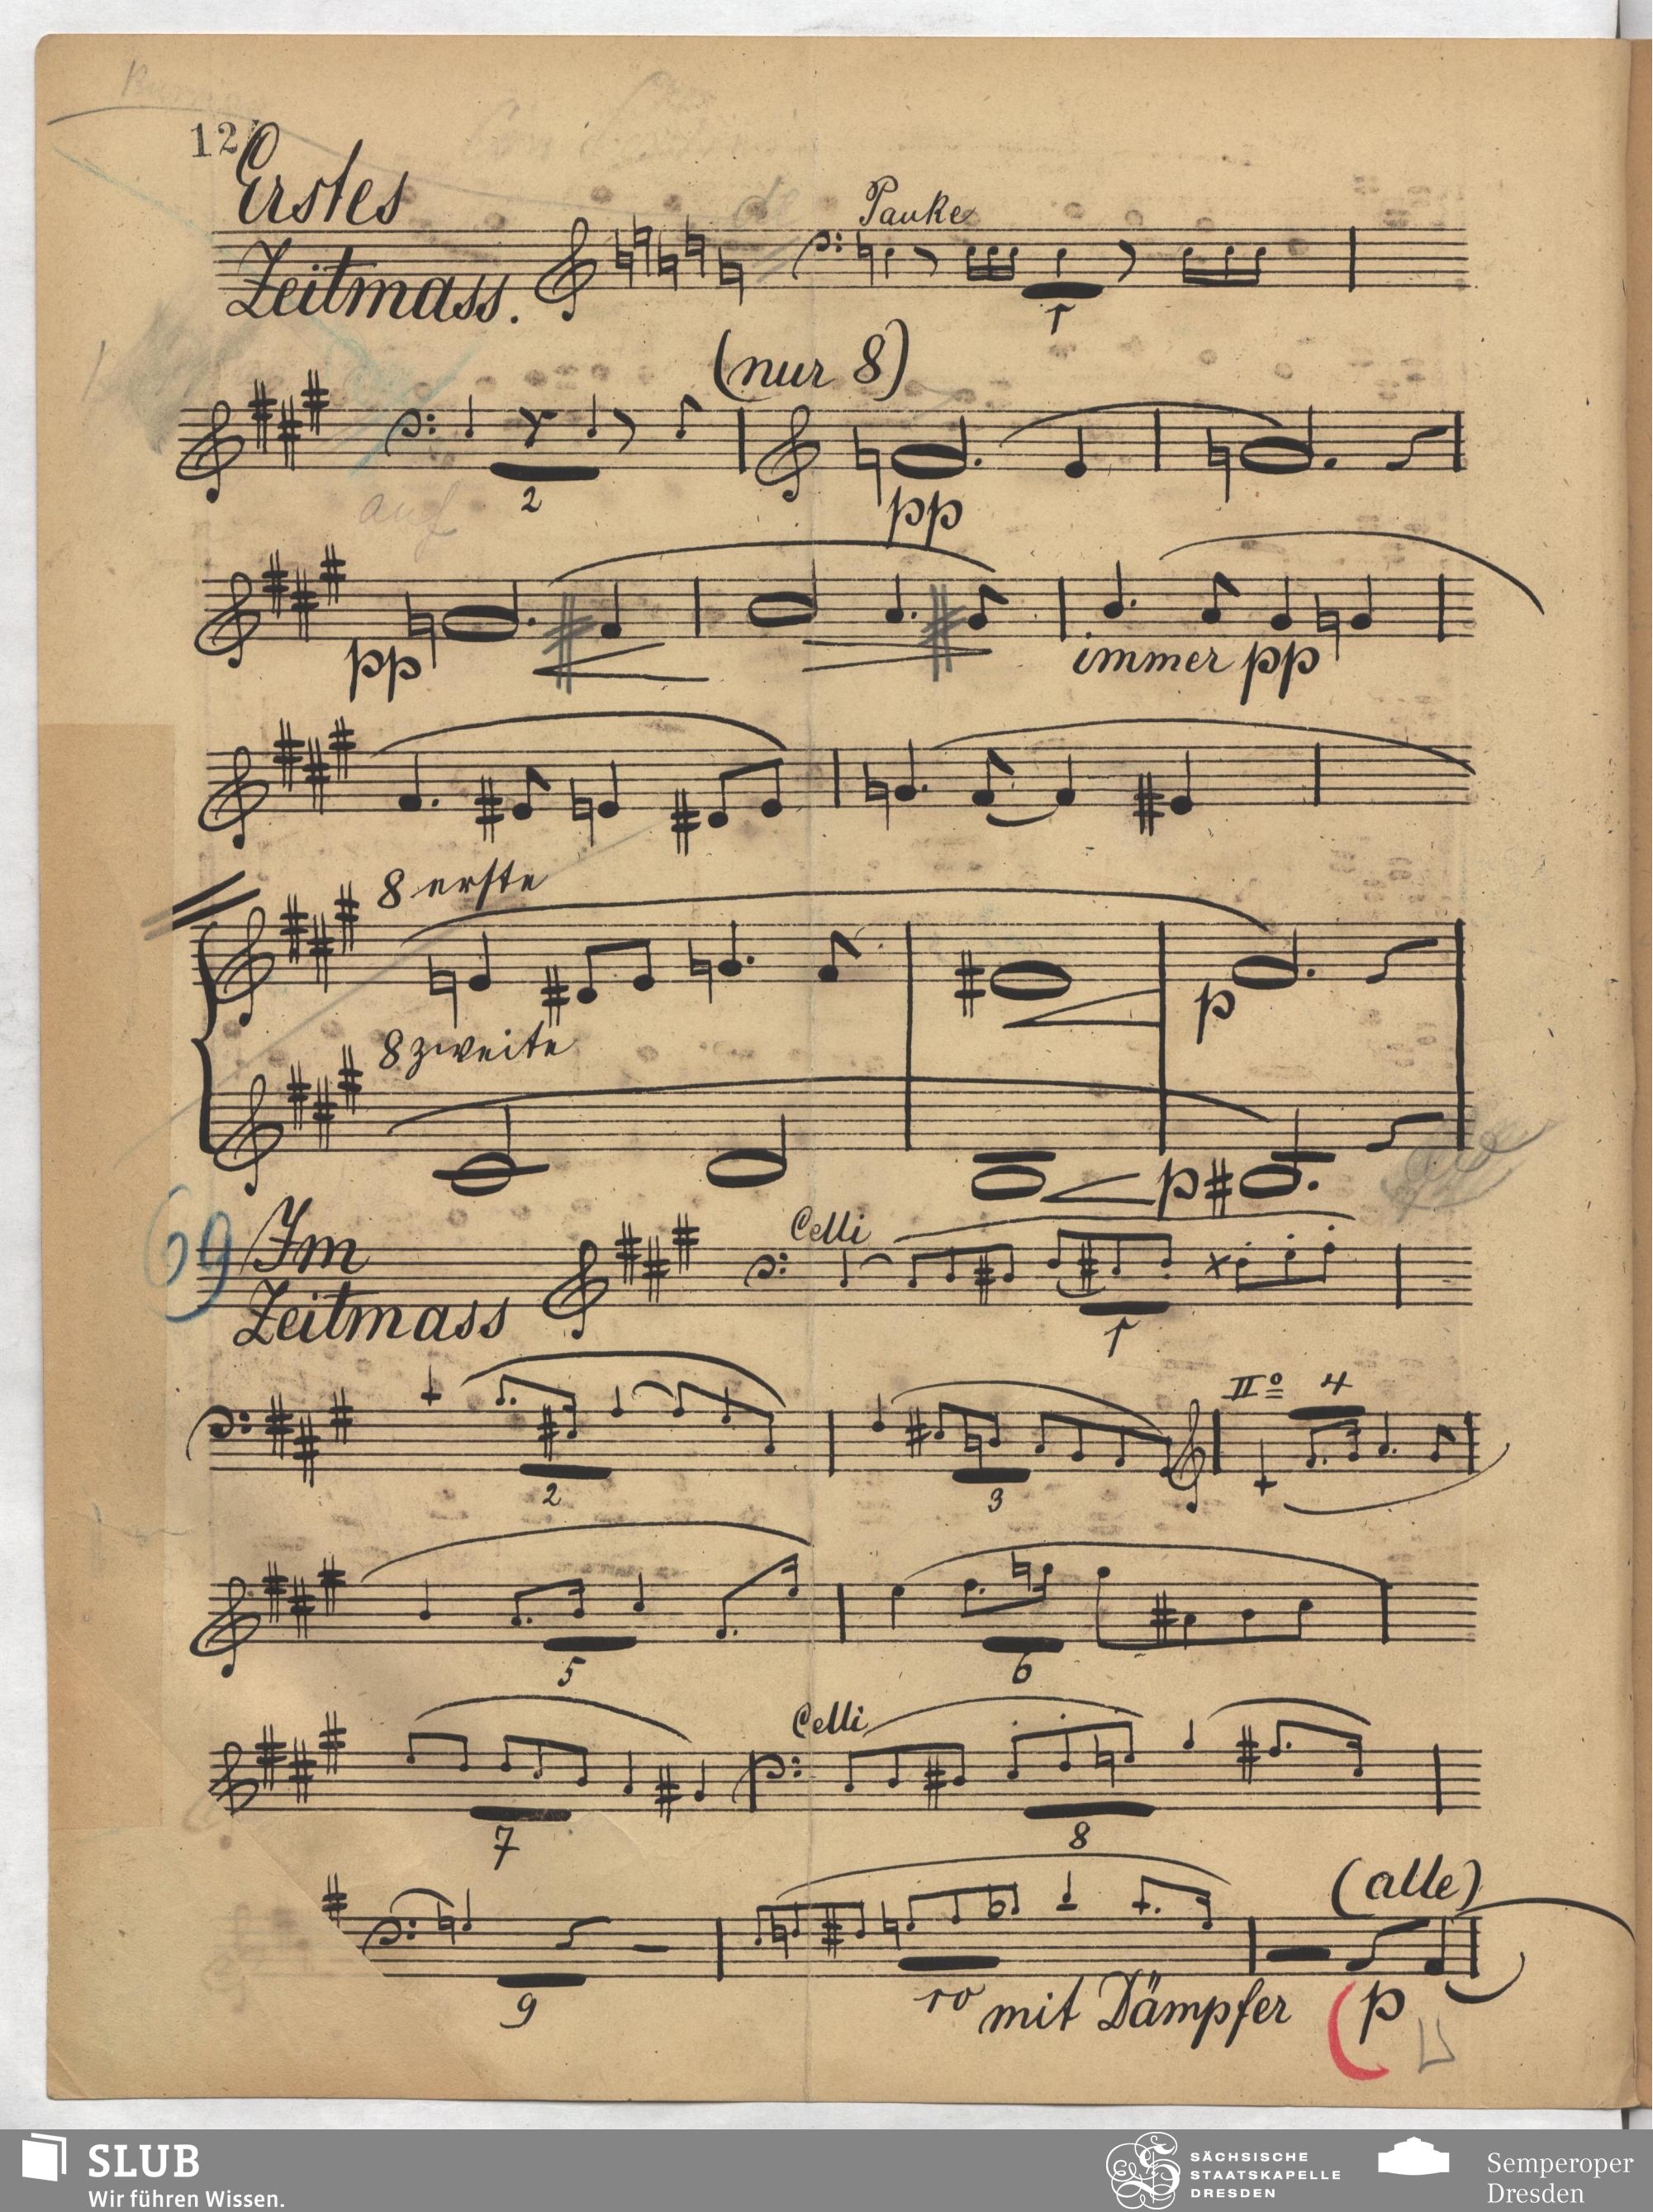 12
Erstes
Pauke
Zeitmass.
1
(nur 8)
2
auf
pp
pp
immer pp
8 erste
p
8 zweite
p
69
Im
Celli
Zeitmass
1
IIº 4
2
3
5
6
Celli
7
8
(alle)
9
10
mit Dämpfer
p
SLUB
Wir führen Wissen.
SÄCHSISCHE
STAATSKAPELLE
DRESDEN
Semperoper
Dresden